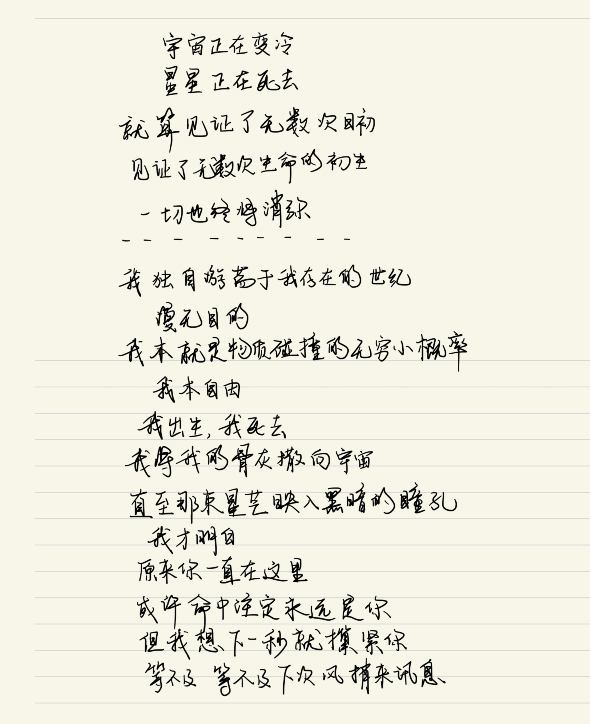 宇宙正在变冷
星星正在死去
就算见证了无数次日初
见证了无数次生命的初生
一切也终将消弥
我独自游荡于我存在的世纪
漫无目的
我本就是物质碰撞的无穷小概率
我本自由
我出生,我死去
我将我的骨灰撒向宇宙
直至那束星芒映入黑暗的瞳孔
我才明白
原来你一直在这里
或许命中注定永远是你
但我想下一秒就揽紧你
等不及 等不及下次风捎来讯息